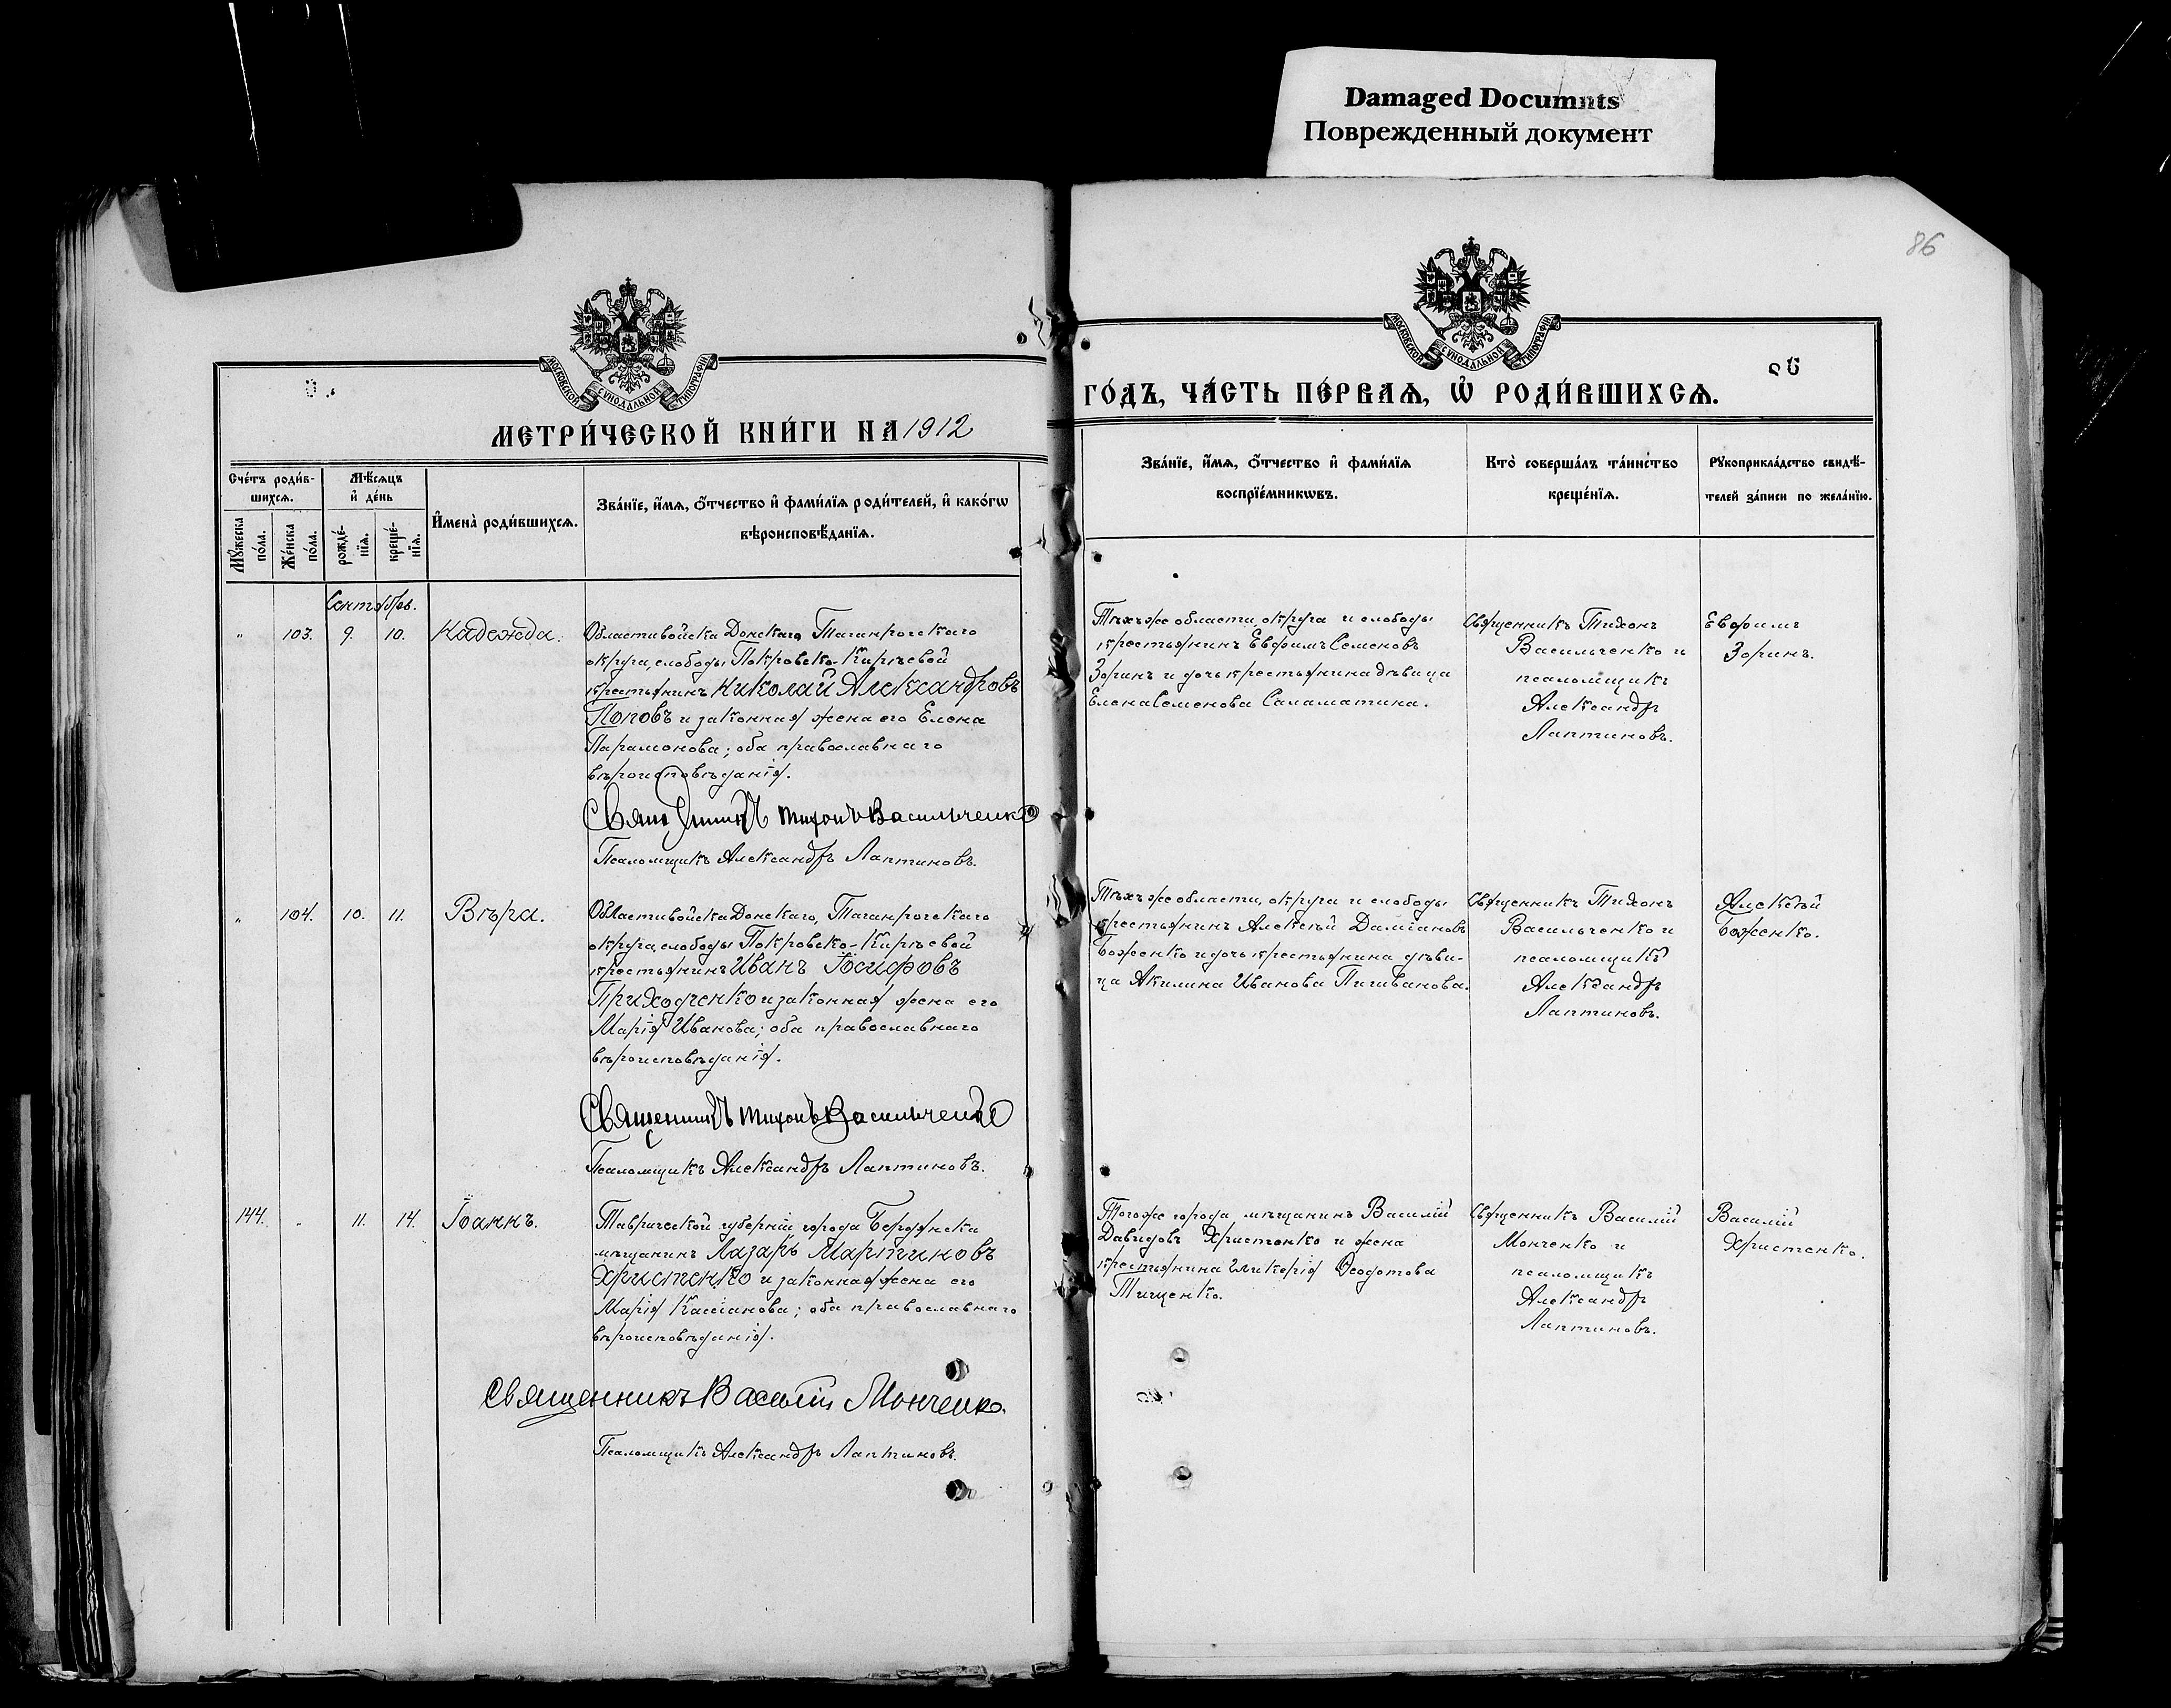 Damaged Documnts
Поврежденный документ
86
МОСКОВСКОЙ СѴНОДАЛЬНОЙ ТИПОГРАФІИ
МОСКОВСКОЙ СѴНОДАЛЬНОЙ ТИПОГРАФІИ
МЕТРИ́ЧЕСКОЙ КНИ́ГИ НА 1912
ГО́ДЪ, ЧА́СТЬ ПЕ́РВАѦ, Ѡ҆ РОДИ́ВШИХСѦ.
Сче́тъ роди́в-
шихсѧ.
Мꙋ́жеска
по́ла.
Же́нска
по́ла.
Мѣ́сѧцъ
и҆ де́нь
рожде́-
нїѧ.
креще́-
нїѧ.
И҆мена̀ роди́вшихсѧ.
Зва́нїе, и҆́мѧ, ѻ҆́тчество и҆ фами́лїѧ роди́телей, и҆ како́гѡ
вѣроисповѣ́данїѧ.
Зва́нїе, и҆́мѧ, ѻ҆́тчество и҆ фами́лїѧ
воспрїе́мникѡвъ.
Кто̀ соверша́лъ та́инство
креще́нїѧ.
Рꙋкоприкла́дство свидѣ́-
телей за́писи по жела́нїю.
Сентябрь.
" 103. 9. 10. Надежда.
Области войска Донскаго, Таганрогскаго
округа, слободы Покровско-Кирѣевой
крестьянинъ Николай Александровъ
Поповъ и законная жена его Елена
Парамонова; оба православнаго
вѣроисповѣданія.
Священникъ Тихонъ Васильченко
Псаломщикъ Александръ Лаптиновъ.
Тѣхъ же области, округа и слободы
крестьянинъ Евфимъ Семеновъ
Зоринъ и дочь крестьянина дѣвица
Елена Семенова Саламатина.
Священникъ Тихонъ
Васильченко и
псаломщикъ
Александръ
Лаптиновъ.
Евфимъ
Зоринъ.
" 104. 10. 11. Вѣра.
Области войска Донскаго, Таганрогскаго
округа, слободы Покровско-Кирѣевой
крестьянинъ Иванъ Іосифовъ
Приходченко и законная жена его
Марія Иванова; оба православнаго
вѣроисповѣданія.
Священникъ Тихонъ Васильченко
Псаломщикъ Александръ Лаптиновъ.
Тѣхъ же области, округа и слободы
крестьянинъ Алексѣй Даміановъ
Боженко и дочь крестьянина дѣви-
ца Акилина Иванова Пигиванова.
Священникъ Тихонъ
Васильченко и
псаломщикъ
Александръ
Лаптиновъ.
Алексѣй
Боженко.
144. " 11. 14. Іоаннъ.
Таврической губерніи города Бердянска
мѣщанинъ Лазарь Мартиновъ
Христенко и законная жена его
Марія Кассіанова; оба православнаго
вѣроисповѣданія.
Священникъ Василій Монченко.
Псаломщикъ Александръ Лаптиновъ.
Того же города мѣщанинъ Василій
Давидовъ Христенко и жена
крестьянина Гликерія Ѳеодотова
Тищенко.
Священникъ Василій
Монченко и
псаломщикъ
Александръ
Лаптиновъ.
Василій
Христенко.